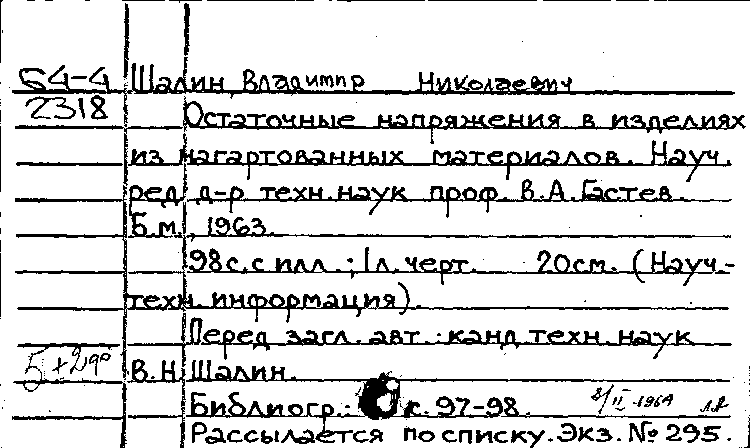 64-4 Шалин, Владимир Николаевич
2318 Остаточные напряжения в изделиях
из нагартованных материалов. Науч.
ред. д-р техн. наук проф. В.А. Гастев.
Б.м., 1963.
98 с. с илл.; 1 л. черт. 20 см. (Науч.-
техн. информация).
Перед загл. авт.: канд. техн. наук
В.Н. Шалин.
Библиогр.: с. 97-98. 8/II-1964
Рассылается по списку. Экз. № 295.